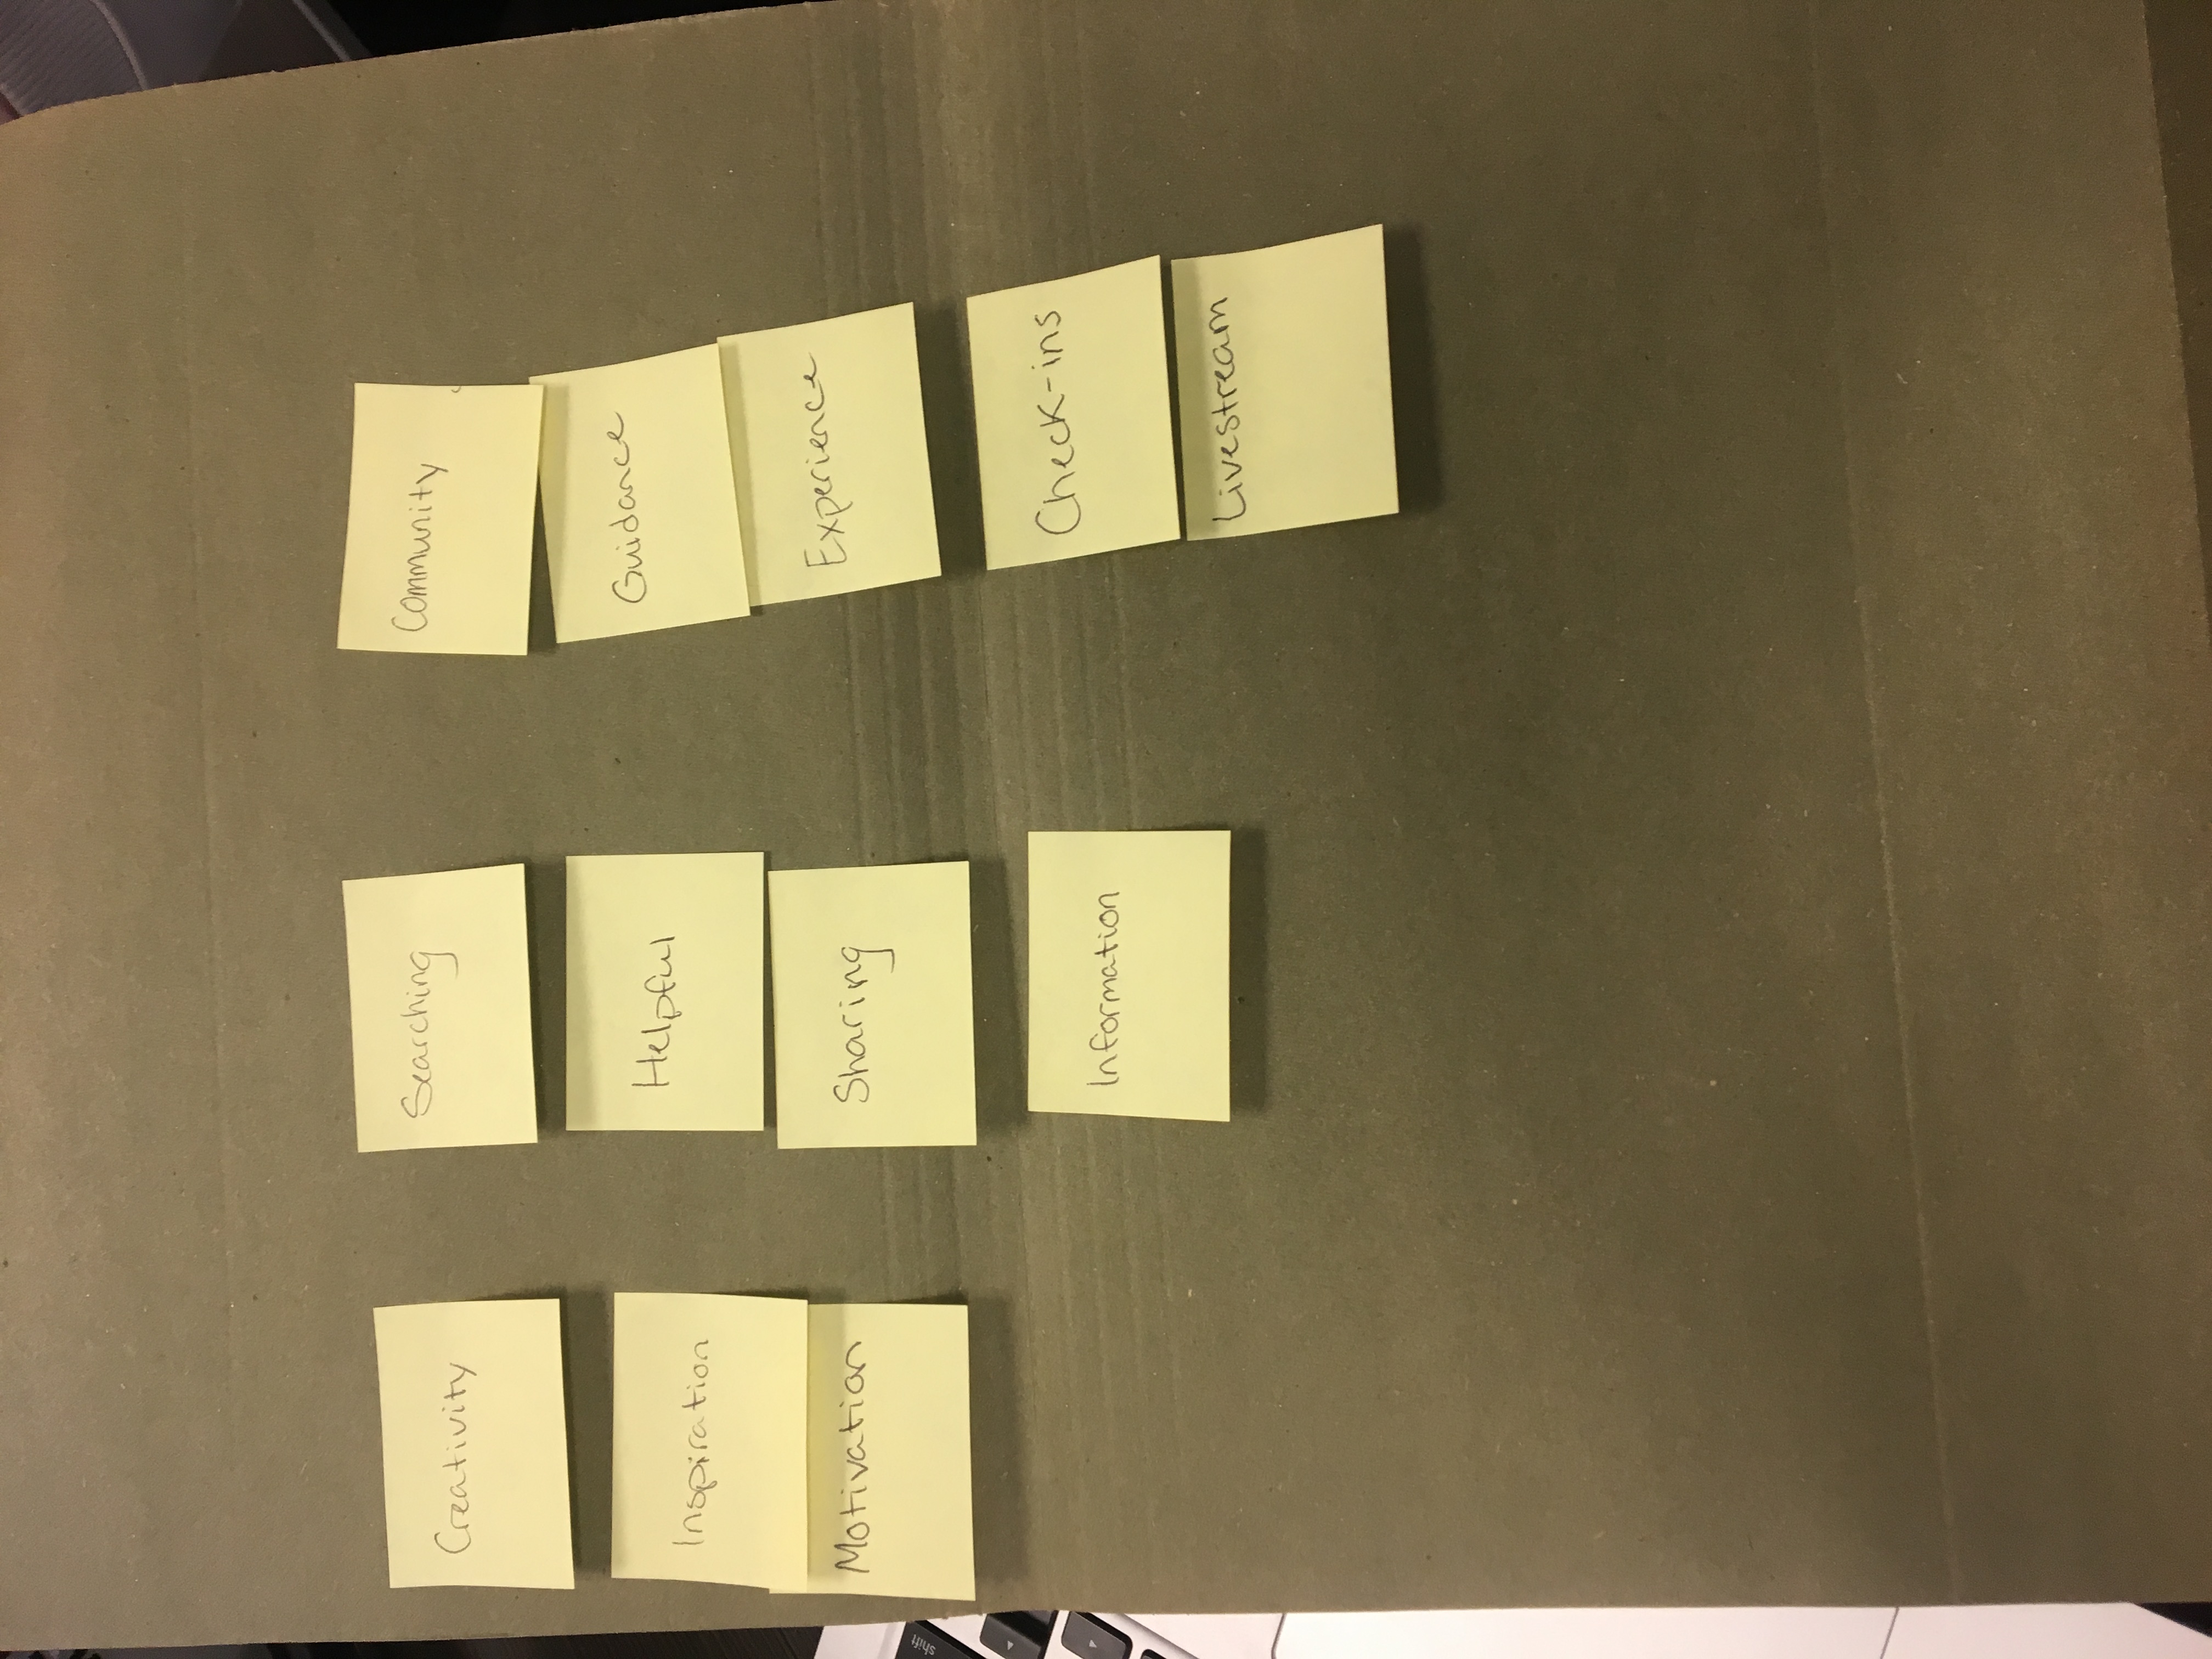 Creativity
Inspiration
Motivation
Searching
Helpful
Sharing
Information
Community
Guidance
Experience
Check-ins
Livestream
shift